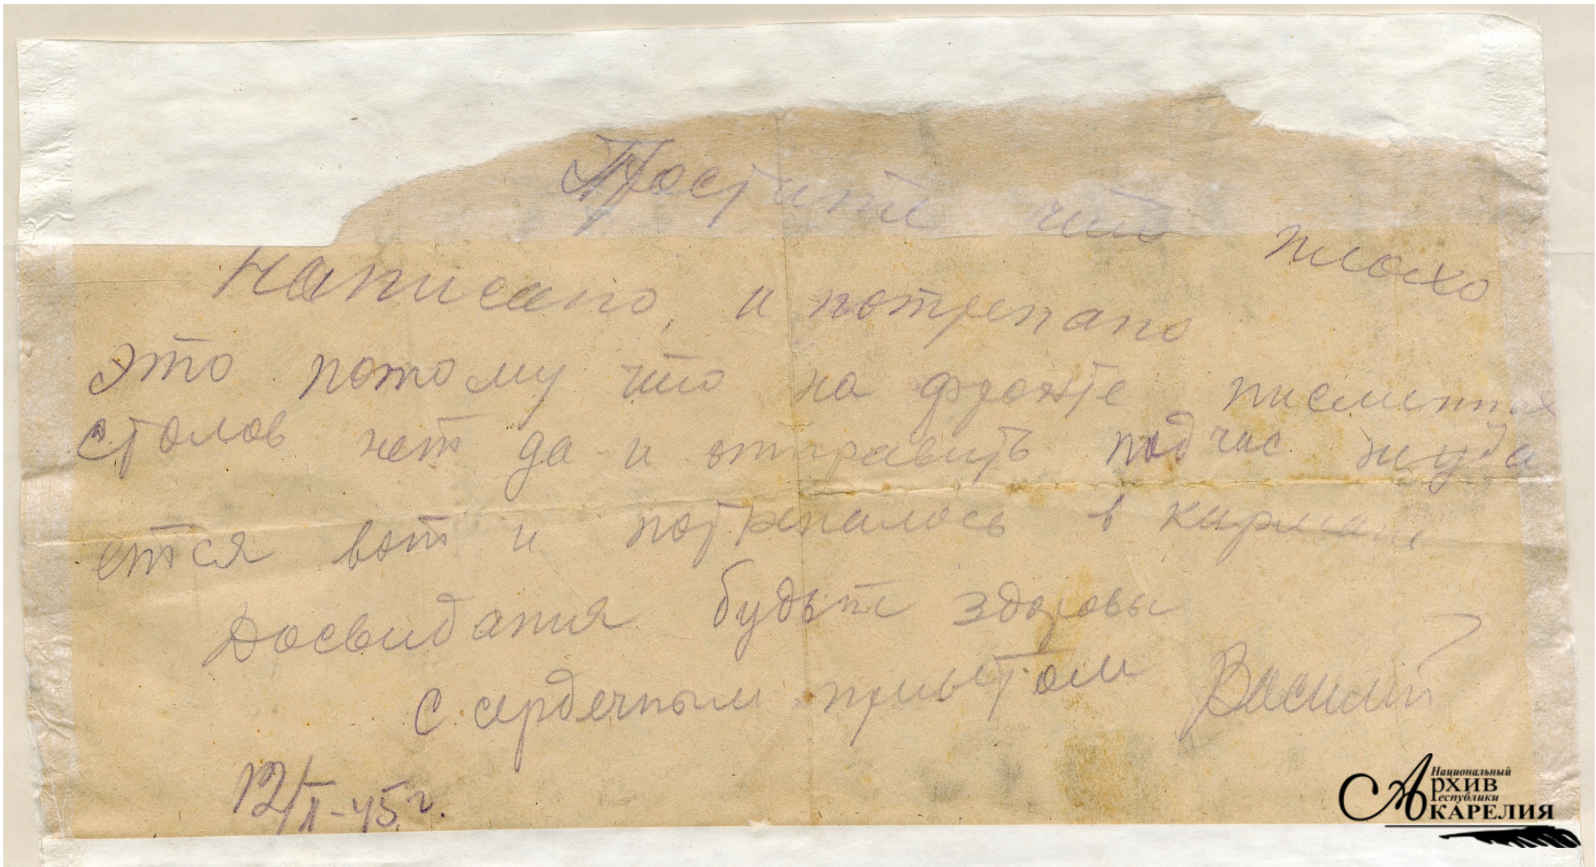 Простите что плохо
написано, и потрепано
это потому что на фронте писменных
столов нет да и отправить подчас неуда
ется вот и потрепалось в кармане
Досвидания будьте здоровы
с сердечным приветом Василий
12/II-45 г.
Национальный
Архив
Республики
Карелия